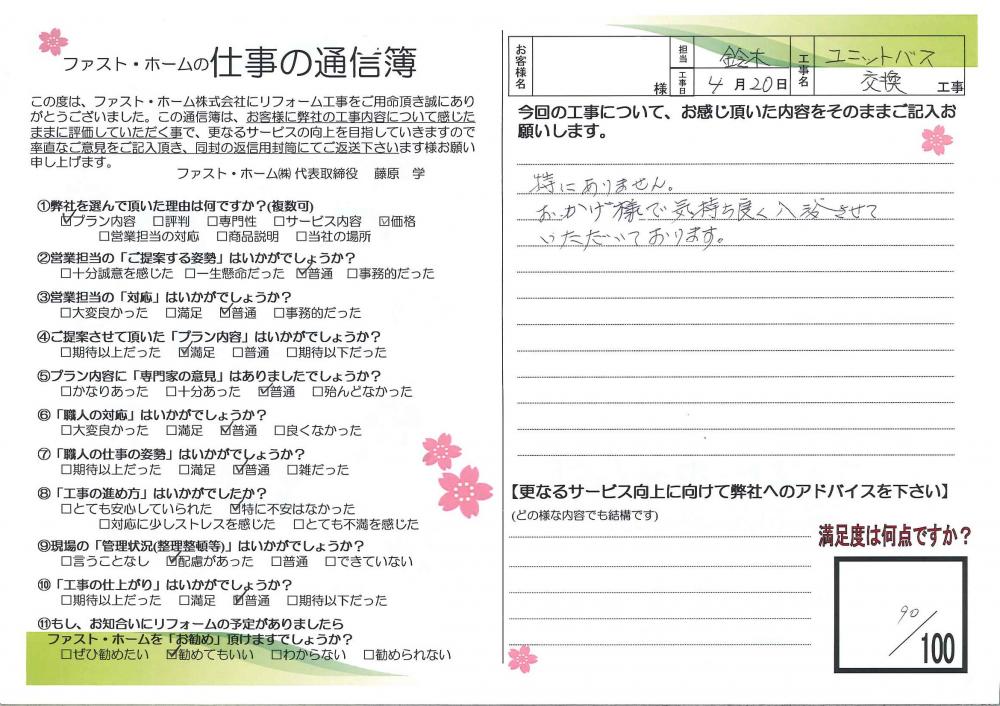 ファスト・ホームの仕事の通信簿
この度は、ファスト・ホーム株式会社にリフォーム工事をご用命頂き誠にあり
がとうございました。この通信簿は、お客様に弊社の工事内容について感じた
ままに評価していただく事で、更なるサービスの向上を目指していきますので
率直なご意見をご記入頂き、同封の返信用封筒にてご返送下さいます様お願い
申し上げます。
ファスト・ホーム㈱ 代表取締役 藤原 学
①弊社を選んで頂いた理由は何ですか?(複数可)
☑プラン内容 □評判 □専門性 □サービス内容 ☑価格
□営業担当の対応 □商品説明 □当社の場所
②営業担当の「ご提案する姿勢」はいかがでしょうか?
□十分誠意を感じた □一生懸命だった ☑普通 □事務的だった
③営業担当の「対応」はいかがでしょうか?
□大変良かった □満足 ☑普通 □事務的だった
④ご提案させて頂いた「プラン内容」はいかがでしょうか?
□期待以上だった ☑満足 □普通 □期待以下だった
⑤プラン内容に「専門家の意見」はありましたでしょうか?
□かなりあった □十分あった ☑普通 □殆んどなかった
⑥「職人の対応」はいかがでしょうか?
□大変良かった □満足 ☑普通 □良くなかった
⑦「職人の仕事の姿勢」はいかがでしょうか?
□期待以上だった □満足 ☑普通 □雑だった
⑧「工事の進め方」はいかがでしたか?
□とても安心していられた ☑特に不安はなかった
□対応に少しストレスを感じた □とても不満を感じた
⑨現場の「管理状況(整理整頓等)」はいかがでしょうか?
□言うことなし ☑配慮があった □普通 □できていない
⑩「工事の仕上がり」はいかがでしょうか?
□期待以上だった □満足 ☑普通 □期待以下だった
⑪もし、お知合いにリフォームの予定がありましたら
ファスト・ホームを「お勧め」頂けますでしょうか?
□ぜひ勧めたい ☑勧めてもいい □わからない □勧められない
お客様名 様 担当 鈴木 工事名 ユニットバス
工事日 4月20日 交換 工事
今回の工事について、お感じ頂いた内容をそのままご記入お
願いします。
特にありません。
おかげ様で気持ち良く入浴させて
いただいております。
【更なるサービス向上に向けて弊社へのアドバイスを下さい】
(どの様な内容でも結構です)
満足度は何点ですか?
90/100